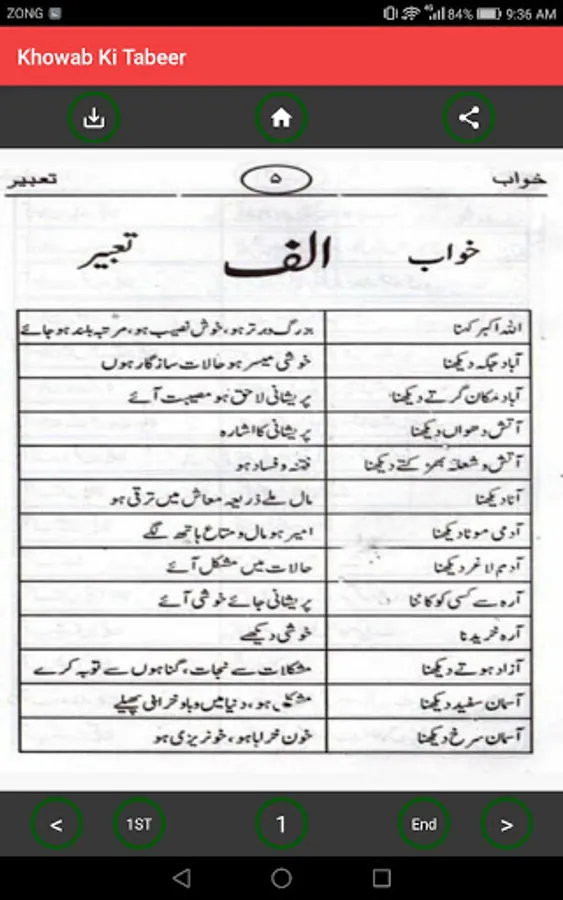 ZONG 4G 84% 9:36 AM
Khowab Ki Tabeer
خواب ۵ تعبیر
خواب الف تعبیر
اللہ اکبر کہنا بزرگ و برتر ہو، خوش نصیب ہو، مرتبہ بلند ہو جائے
آباد جگہ دیکھنا خوشی میسر ہو حالات سازگار ہوں
آباد مکان گرتے دیکھنا پریشانی لاحق ہو مصیبت آئے
آتش دھواں دیکھنا پریشانی کا اشارہ
آتش و شعلہ بھڑکتے دیکھنا فتنہ و فساد ہو
آٹا دیکھنا مال ملے ذریعہ معاش میں ترقی ہو
آدمی موٹا دیکھنا امیر ہو مال و متاع ہاتھ لگے
آدم لاغر دیکھنا حالات میں مشکل آئے
آرہ سے کسی کو کاٹنا پریشانی جائے خوشی آئے
آرہ خریدنا خوشی دیکھے
آزاد ہوتے دیکھنا مشکلات سے نجات، گناہوں سے توبہ کرے
آسمان سفید دیکھنا مشکل ہو، دنیا میں وبا و خرابی پھیلے
آسمان سرخ دیکھنا خون خرابا ہو، خونریزی ہو
< 1ST 1 End >